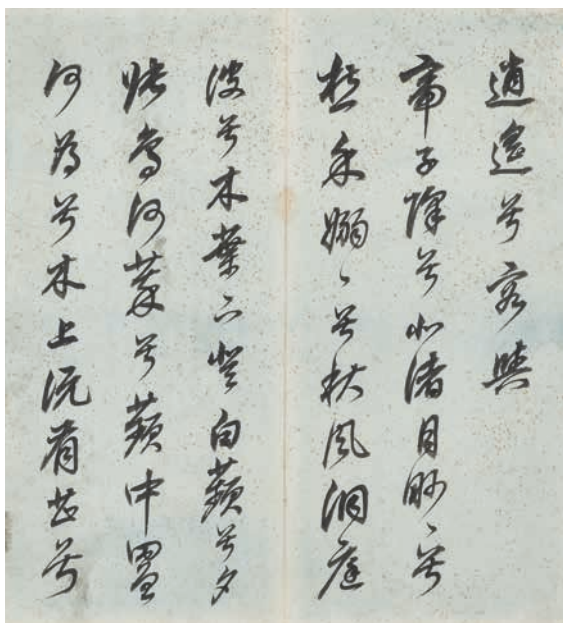 逍遙兮容與
帝子降兮北渚目眇〻兮
愁余嫋〻兮秋風洞庭
波兮木葉下登白薠兮夕
張鳥何萃兮蘋中罾
何為兮木上沅有芷兮